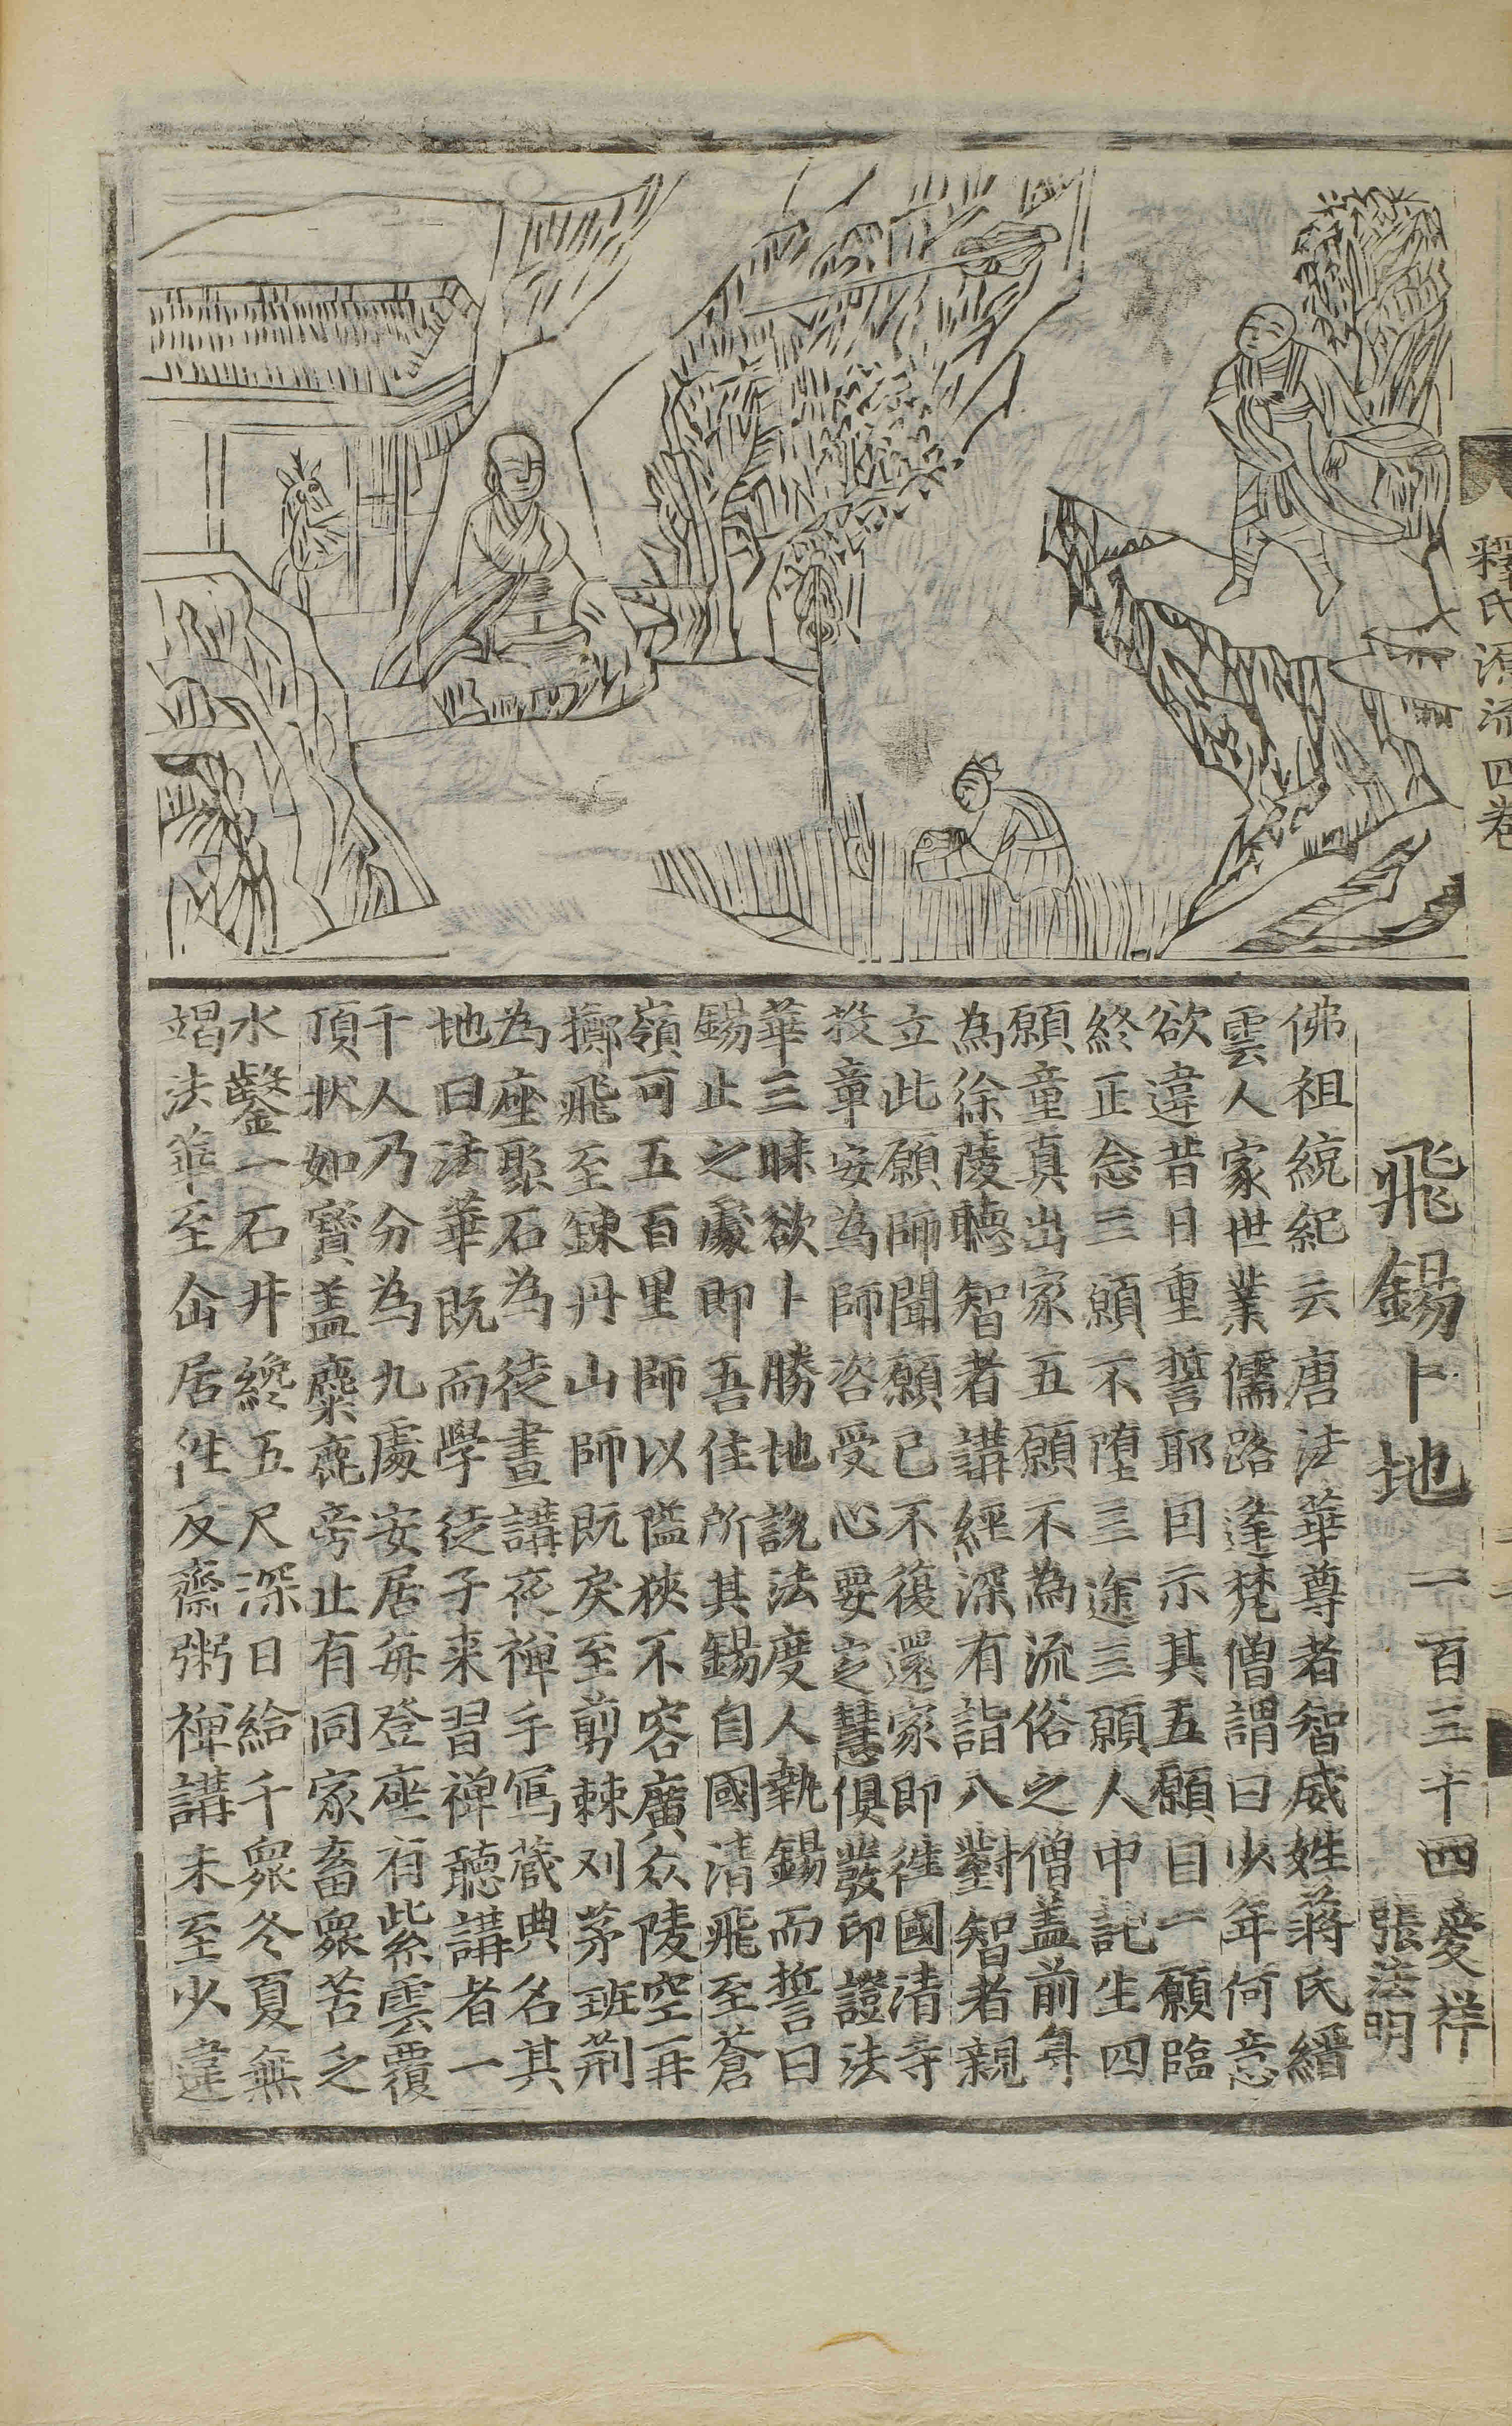 釋氏源流四卷
飛錫卜地 一百三十四 愛祥
張法明
佛祖統紀云唐法華尊者智威姓蔣氏縉
雲人家世業儒路逢梵僧謂曰少年何意
欲違昔日重誓耶因示其五願目一願臨
終正念二願不墮三途三願人中託生四
願童真出家五願不為流俗之僧蓋前身
為徐陵聽智者講經深有詣入對智者親
立此願師聞願已不復還家即徃國清寺
投章安為師咨受心要定慧俱發印證法
華三昧欲卜勝地說法度人執錫而誓曰
錫止之處即吾住所其錫自國清飛至蒼
嶺可五百里師以隘狹不容廣众陵空再
擲飛至鍊丹山師既戾至剪棘刈茅班荆
為座聚石為徒晝講夜禪手寫藏典名其
地曰法華既而學徒子来習禪聽講者一
千人乃分為九處安居每登座有紫雲覆
頂狀如寶盖麋鹿旁止有同家畜衆苦乏
水鑿一石井纔五尺深日給千衆冬夏無
竭法華至仚居徃反齋粥禪講未至少違